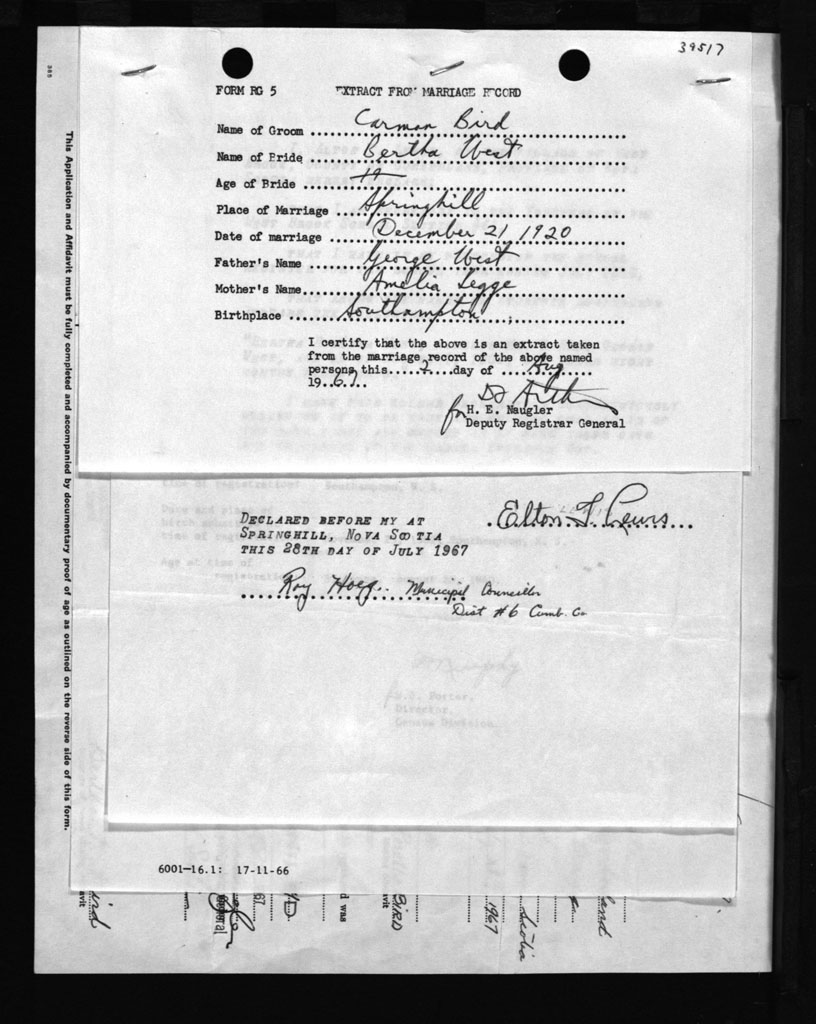 39517
388
FORM RG 5 EXTRACT FROM MARRIAGE RECORD
Name of Groom Carman Bird
Name of Bride Bertha West
Age of Bride 19
Place of Marriage Springhill
Date of marriage December 21 1920
Father's Name George West
Mother's Name Amelia Legge
Birthplace Southampton
I certify that the above is an extract taken
from the marriage record of the above named
persons this 2 day of Aug
19 67
for H. E. Naugler
Deputy Registrar General
Elton L. Lewis
DECLARED BEFORE MY AT
SPRINGHILL, NOVA SCOTIA
THIS 28TH DAY OF JULY 1967
Roy Hoeg Municipal Councillor
Dist #6 Cumb. Co
Porter.
Director.
Census Division.
6001-16.1: 17-11-66
This Application and Affidavit must be fully completed and accompanied by documentary proof of age as outlined on the reverse side of this form.
67
d was
BIRD
1967
Scotia